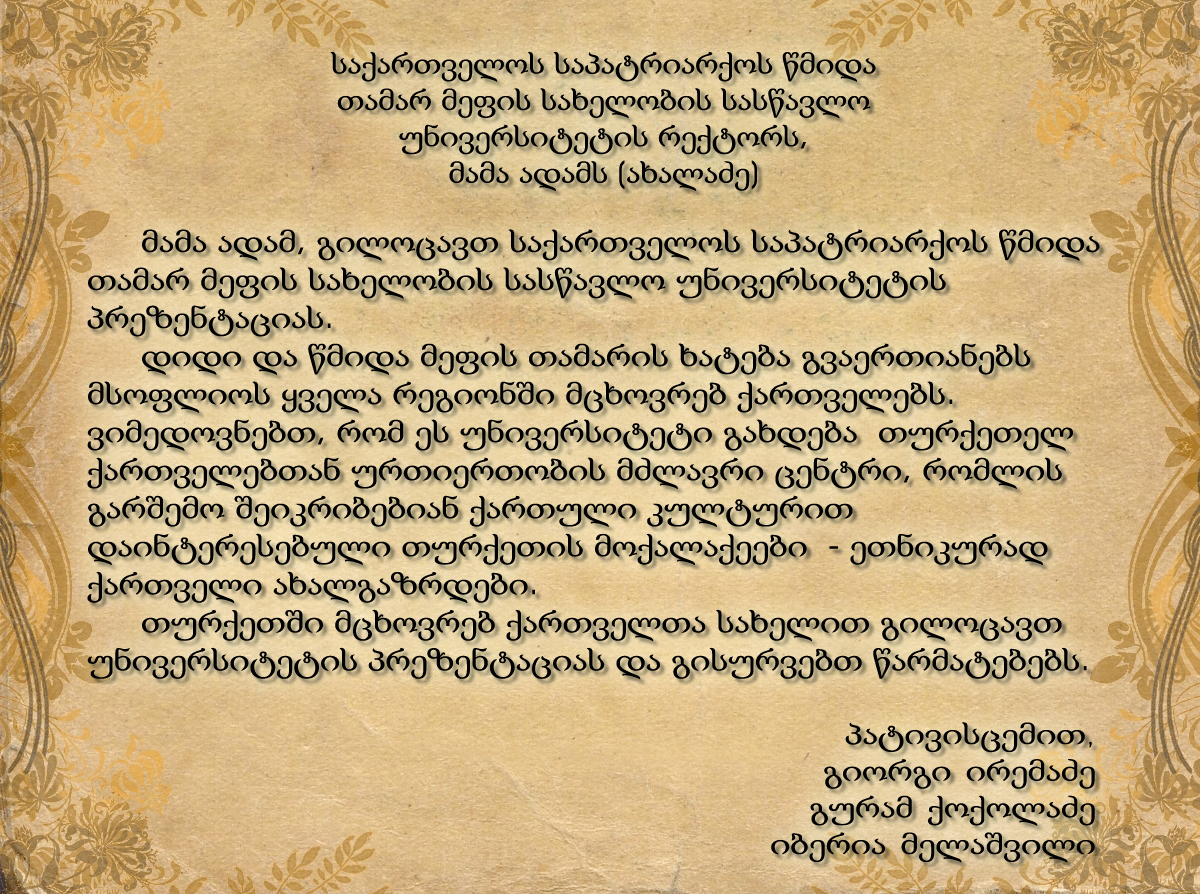 საქართველოს საპატრიარქოს წმიდა
თამარ მეფის სახელობის სასწავლო
უნივერსიტეტის რექტორს,
მამა ადამს (ახალაძე)
მამა ადამ, გილოცავთ საქართველოს საპატრიარქოს წმიდა
თამარ მეფის სახელობის სასწავლო უნივერსიტეტის
პრეზენტაციას.
დიდი და წმიდა მეფის თამარის ხატება გვაერთიანებს
მსოფლიოს ყველა რეგიონში მცხოვრებ ქართველებს.
ვიმედოვნებთ, რომ ეს უნივერსიტეტი გახდება  თურქეთელ
ქართველებთან ურთიერთობის მძლავრი ცენტრი, რომლის
გარშემო შეიკრიბებიან ქართული კულტურით
დაინტერესებული თურქეთის მოქალაქეები  - ეთნიკურად
ქართველი ახალგაზრდები.
თურქეთში მცხოვრებ ქართველთა სახელით გილოცავთ
უნივერსიტეტის პრეზენტაციას და გისურვებთ წარმატებებს.
პატივისცემით,
გიორგი ირემაძე
გურამ ქოქოლაძე
იბერია მელაშვილი